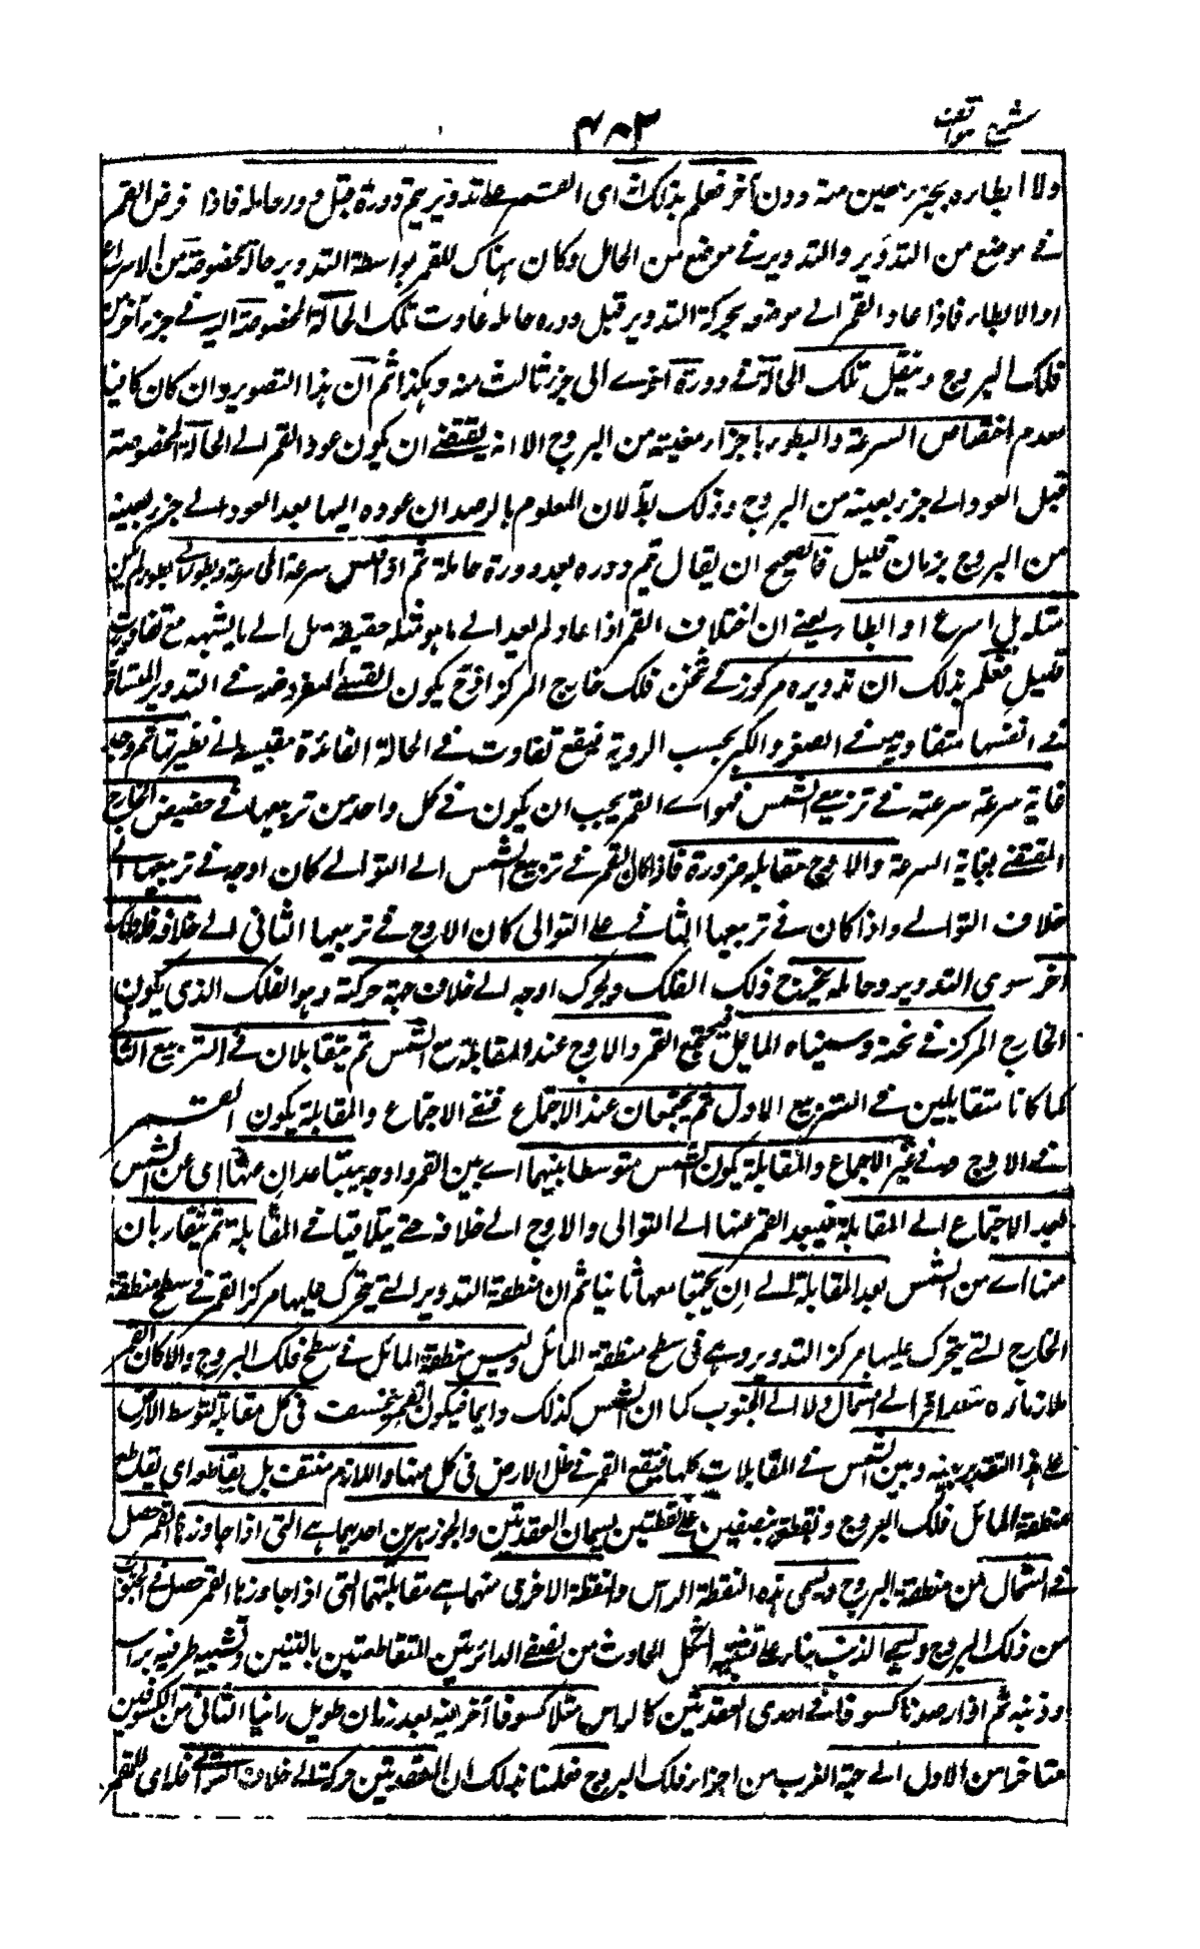 شرح مواقف
٤٨٣
ولا ابطاره بجزء بعين منه دون آخر فعلم بذلك انه اى القمر على تدوير يتم دوره قبل دور حامله فاذا فرض القمر
فے موضع من التدوير والتدوير فے موضع من الحامل وكان هناك للقمر بواسطة التدوير حالة مخصوصة من الاسراع
او الابطاء فاذا عاد القمر الے موضعه بحركة التدوير قبل دوره حامله عادت تلك الحالة المخصوصة اليه فے جزء آخر من
فلك البروج وينتقل تلك الحالة فے دورة اخرے الى جزء ثالث منه وهكذا ثم ان هذا التصوير وان كان كافيا
لعدم اختصاص السرعة والبطوء باجزاء معينة من البروج الا انه يقتضے ان يكون عود القمر الے الحالة المخصوصة
قبل العود الے جزء بعينه من البروج وذلك بط لان المعلوم بالرصد ان عوده اليها بعد العود الے جزء بعينه
من البروج بزمان قليل فالصحيح ان يقال يتم دوره بعد دورة حامله ثم اذا قيس سرعة الى سرعة وبطوء الے بطوء لم يكن
متساويا بل اسرع او ابطاء يعنے ان اختلاف القمر اذا عاد لم يعد الے ما هو مثله حقيقة بل الے ما يشبهه مع تفاوت
قليل فعلم بذلك ان تدويره مركوز فے ثخن فلك خارج المركز اذ ح يكون القسے المفروضة فے التدوير المتساوية
فے انفسها متفاوتة فے الصغر والكبر بحسب الروية فيقع تفاوت فے الحالة العائدة مقيسة الے نظيرتها ثم وجد
غاية سرعة سرعته فے تربيعے الشمس فهو اے القمر يجب ان يكون فے كل واحد من تربيعيها فے حضيض الخارج
المقتضے لغاية السرعة والاوج مقابله ضرورة فاذا كان القمر فے تربيع الشمس الے التوالے كان اوجه فے تربيعها الے
خلاف التوالے واذا كان فے تربيعها الثانے علے التوالى كان الاوج فے تربيعها الثانى الے خلافه فلك
آخر سوى التدوير وحامله يخرج ذلك الفلك ويحرك اوجه الے خلاف جهة حركته وهو الفلك الذى يكون
الخارج المركز فے ثخنه وسميناه المايل فيجتمع القمر والاوج عند المقابلة مع الشمس ثم يتقابلان فے التربيع الثانى
كما كانا متقابلين فے التربيع الاول ثم يجتمعان عند الاجتماع ففے الاجتماع والمقابلة يكون القمر
فے الاوج وفے غير الاجماع والمقابلة يكون الشمس متوسطا بينهما اے بين القمر واوجه يتباعدان منها اى عن الشمس
بعد الاجتماع الے المقابلة فيبعد القمر عنها الے التوالى والاوج الے خلافه حتے يتلاقيا فے المقابلة ثم يتقاربان
منها اے من الشمس بعد المقابلة الے ان يجتمعا معها ثانيا ثم ان منطقة التدوير التے يتحرك عليها مركز القمر فے سطح منطقة
الخارج التے يتحرك عليها مركز التدوير وهے فى سطح منطقة المائل وليس منطقة المائل فے سطح فلك البروج والا كان القمر
ملازما له متعد اقر الے الشمال ولا الے الجنوب كما ان الشمس كذلك دايما فيكون القمر ينخسف فى كل مقابلة لتوسط الارض
علے هذا التقدير بينه وبين الشمس فے المقابلات كلها فيقع القمر فے ظل الارض فى كل منها واللازم منتف بل يقاطعه اى يقاطع
منطقة المائل فلك البروج ونقطة بنصفين علے نقطتين يسميان العقدتين والجوزهرين احديهما هے التى اذا جاوزها القمر حصل
فے الشمال من منطقة البروج ويسمى هذه النقطة الراس والنقطة الاخرى منهما هے مقابلتهما التى اذا جاوزها القمر حصل فے الجنوب
من فلك البروج ويسمے الذنب بناء علے تشبيه الشكل الحادث من نصفے الدائرتين المتقاطعتين بالتنين وتشبيه طرفيه براسه
وذنبه ثم اذا رصدنا كسوفا فے احدى العقدتين كالراس مثلا كسوفا آخر فيه بعد زمان طويل راينا الثانى من الكسوفين
متاخرا من الاول الے جهة الغرب من اجزاء فلك البروج فعلمنا بذلك ان للعقدتين حركة الے خلاف التوالے فلاى للقمر